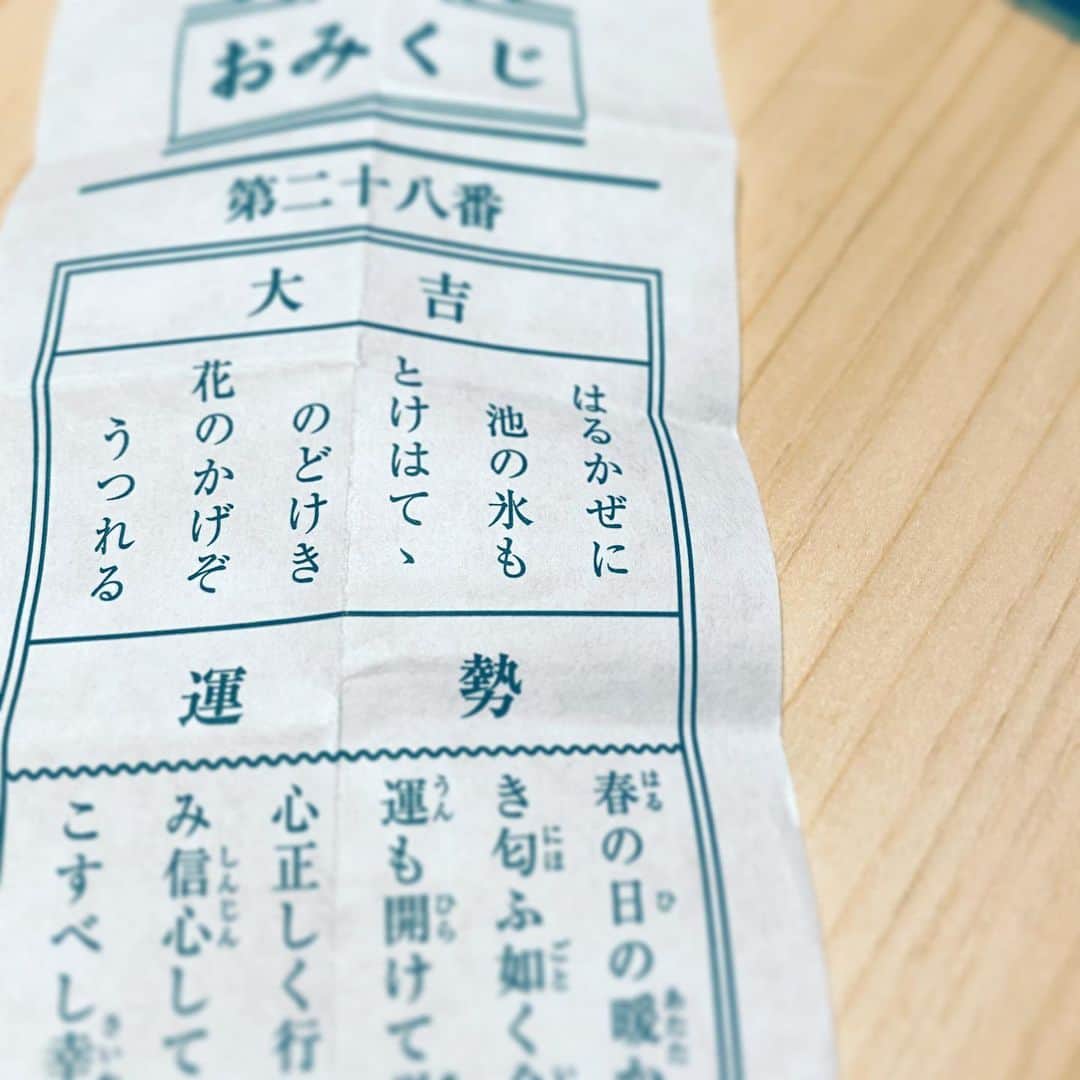 おみくじ
第二十八番
大吉
はるかぜに
池の氷も
とけはてゝ
のどけき
花のかげぞ
うつれる
運勢
春の日の暖か
き匂ふ如く
運も開けて
心正しく行
み信心して
こすべし幸